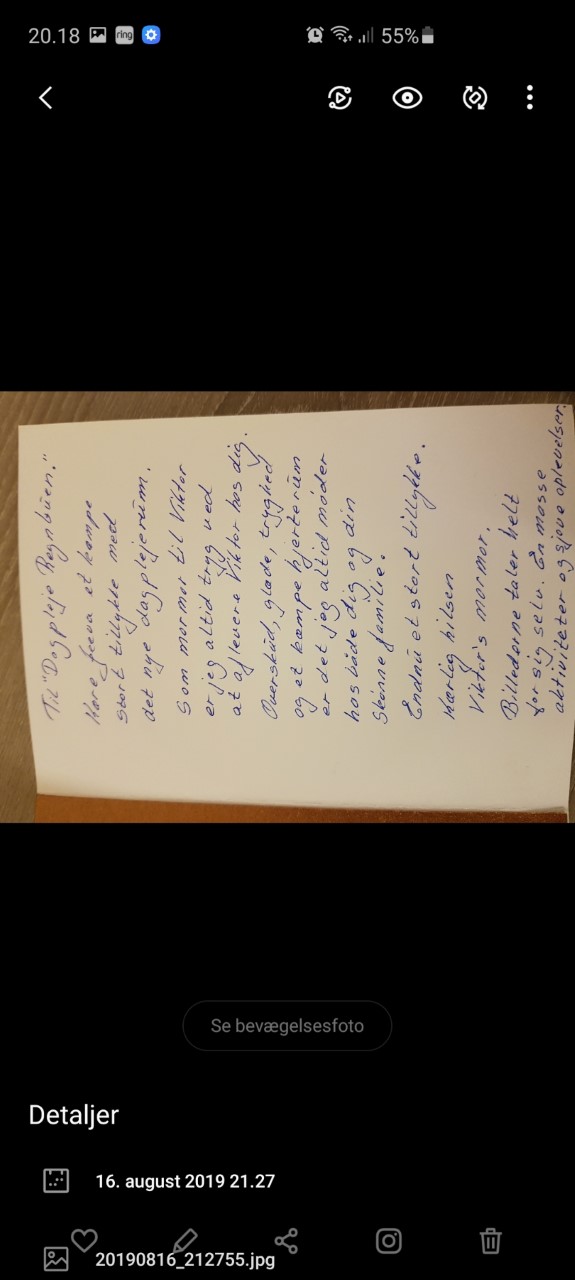 20.18
ring
55%
Til "Dagpleje Regnbüen."
Kære et kæmpe
stort tillykke med
det nye dagplejerüm.
Som mormor til Viktor
er jeg altid tryg ved
at aflevere Viktor hos dig.
Oversküd, glæde, tryghed
og et kæmpe hjerterüm
er det jeg altid møder
hos både dig og din
skønne familie.
Endnü et stort tillykke.
Kærlig hilsen
Viktor's mormor.
Billederne taler helt
for sig selv. En masse
aktiviteter og sjove oplevelser.
Se bevægelsesfoto
Detaljer
16. august 2019 21.27
20190816_212755.jpg